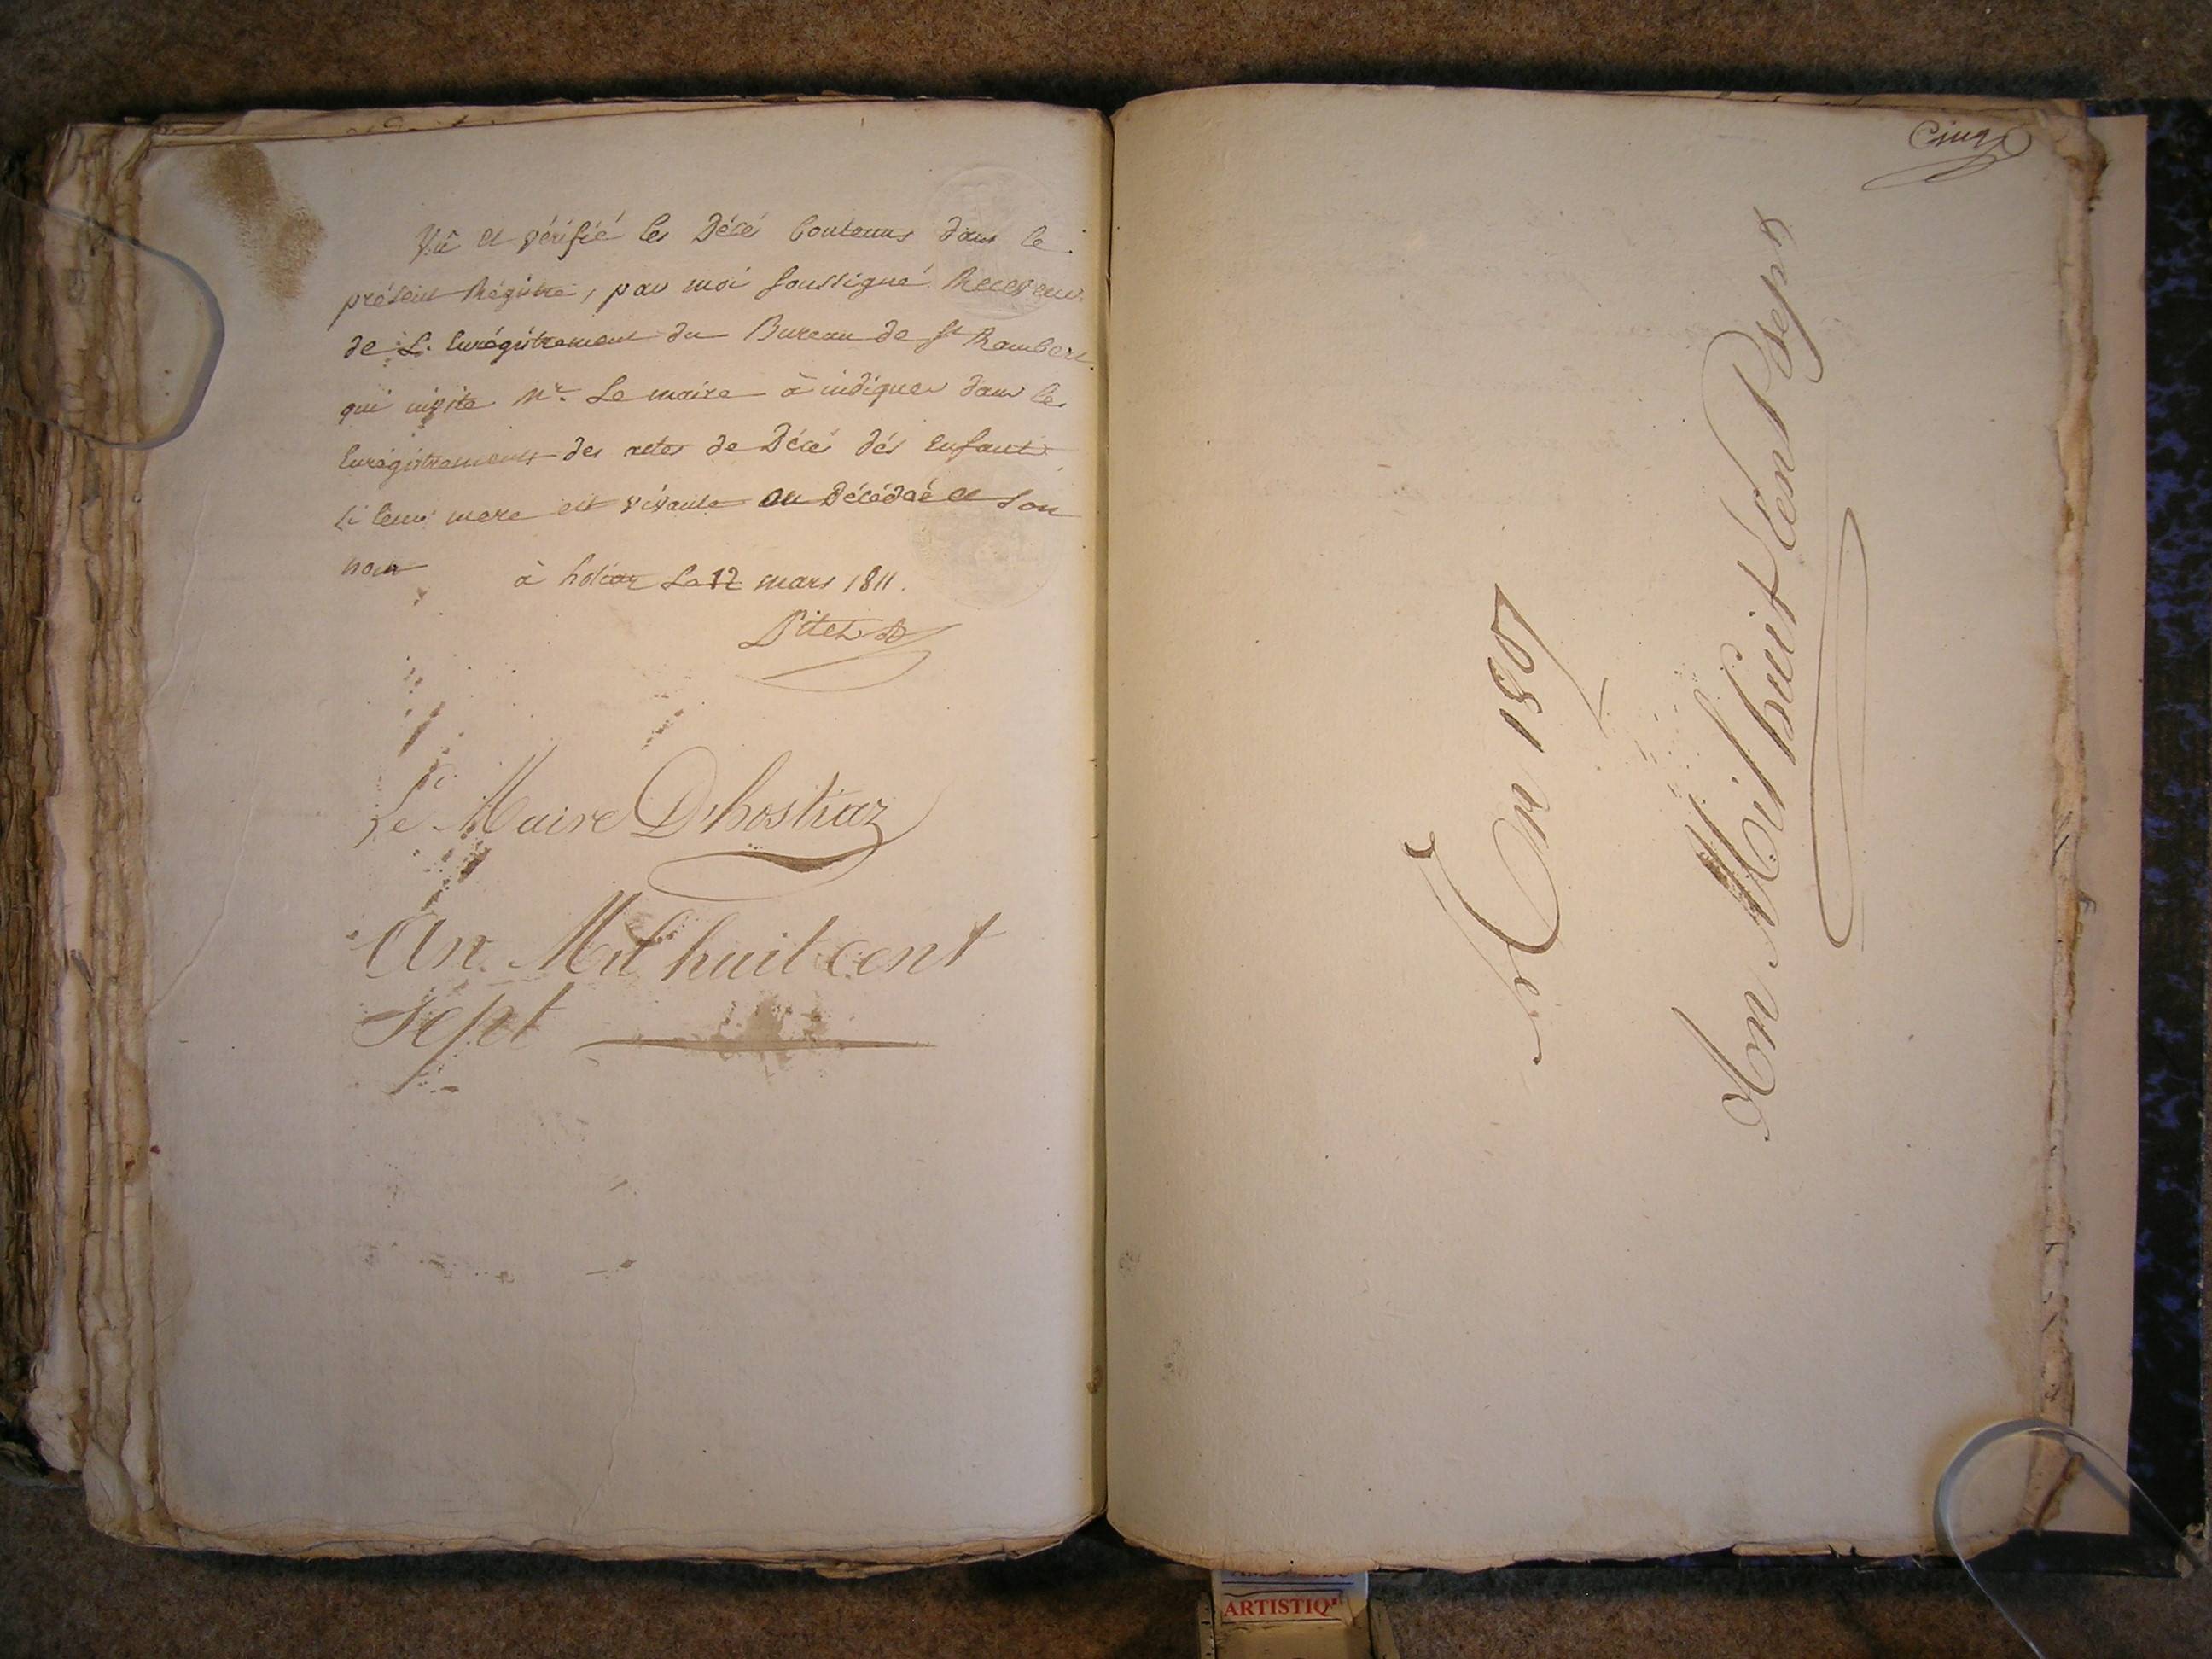 Vû et vérifié les Décé Contenus dans le
présent Régistre, par moi Soussigné Receveur
de L. Enrégistrement du Bureau de St Rambert
qui invite Mr. Le maire à indiquer dans les
Enrégistrements des actes de Décés dés Enfant
Si leur mere est vivante ou Décédée et Son
nom à hotiaz Le 12 mars 1811.
Le Maire D'hostiaz
An Mil huit cent
Sept
Cinq
An 1807
An Mil huit Cent Sept
ARTISTIQ